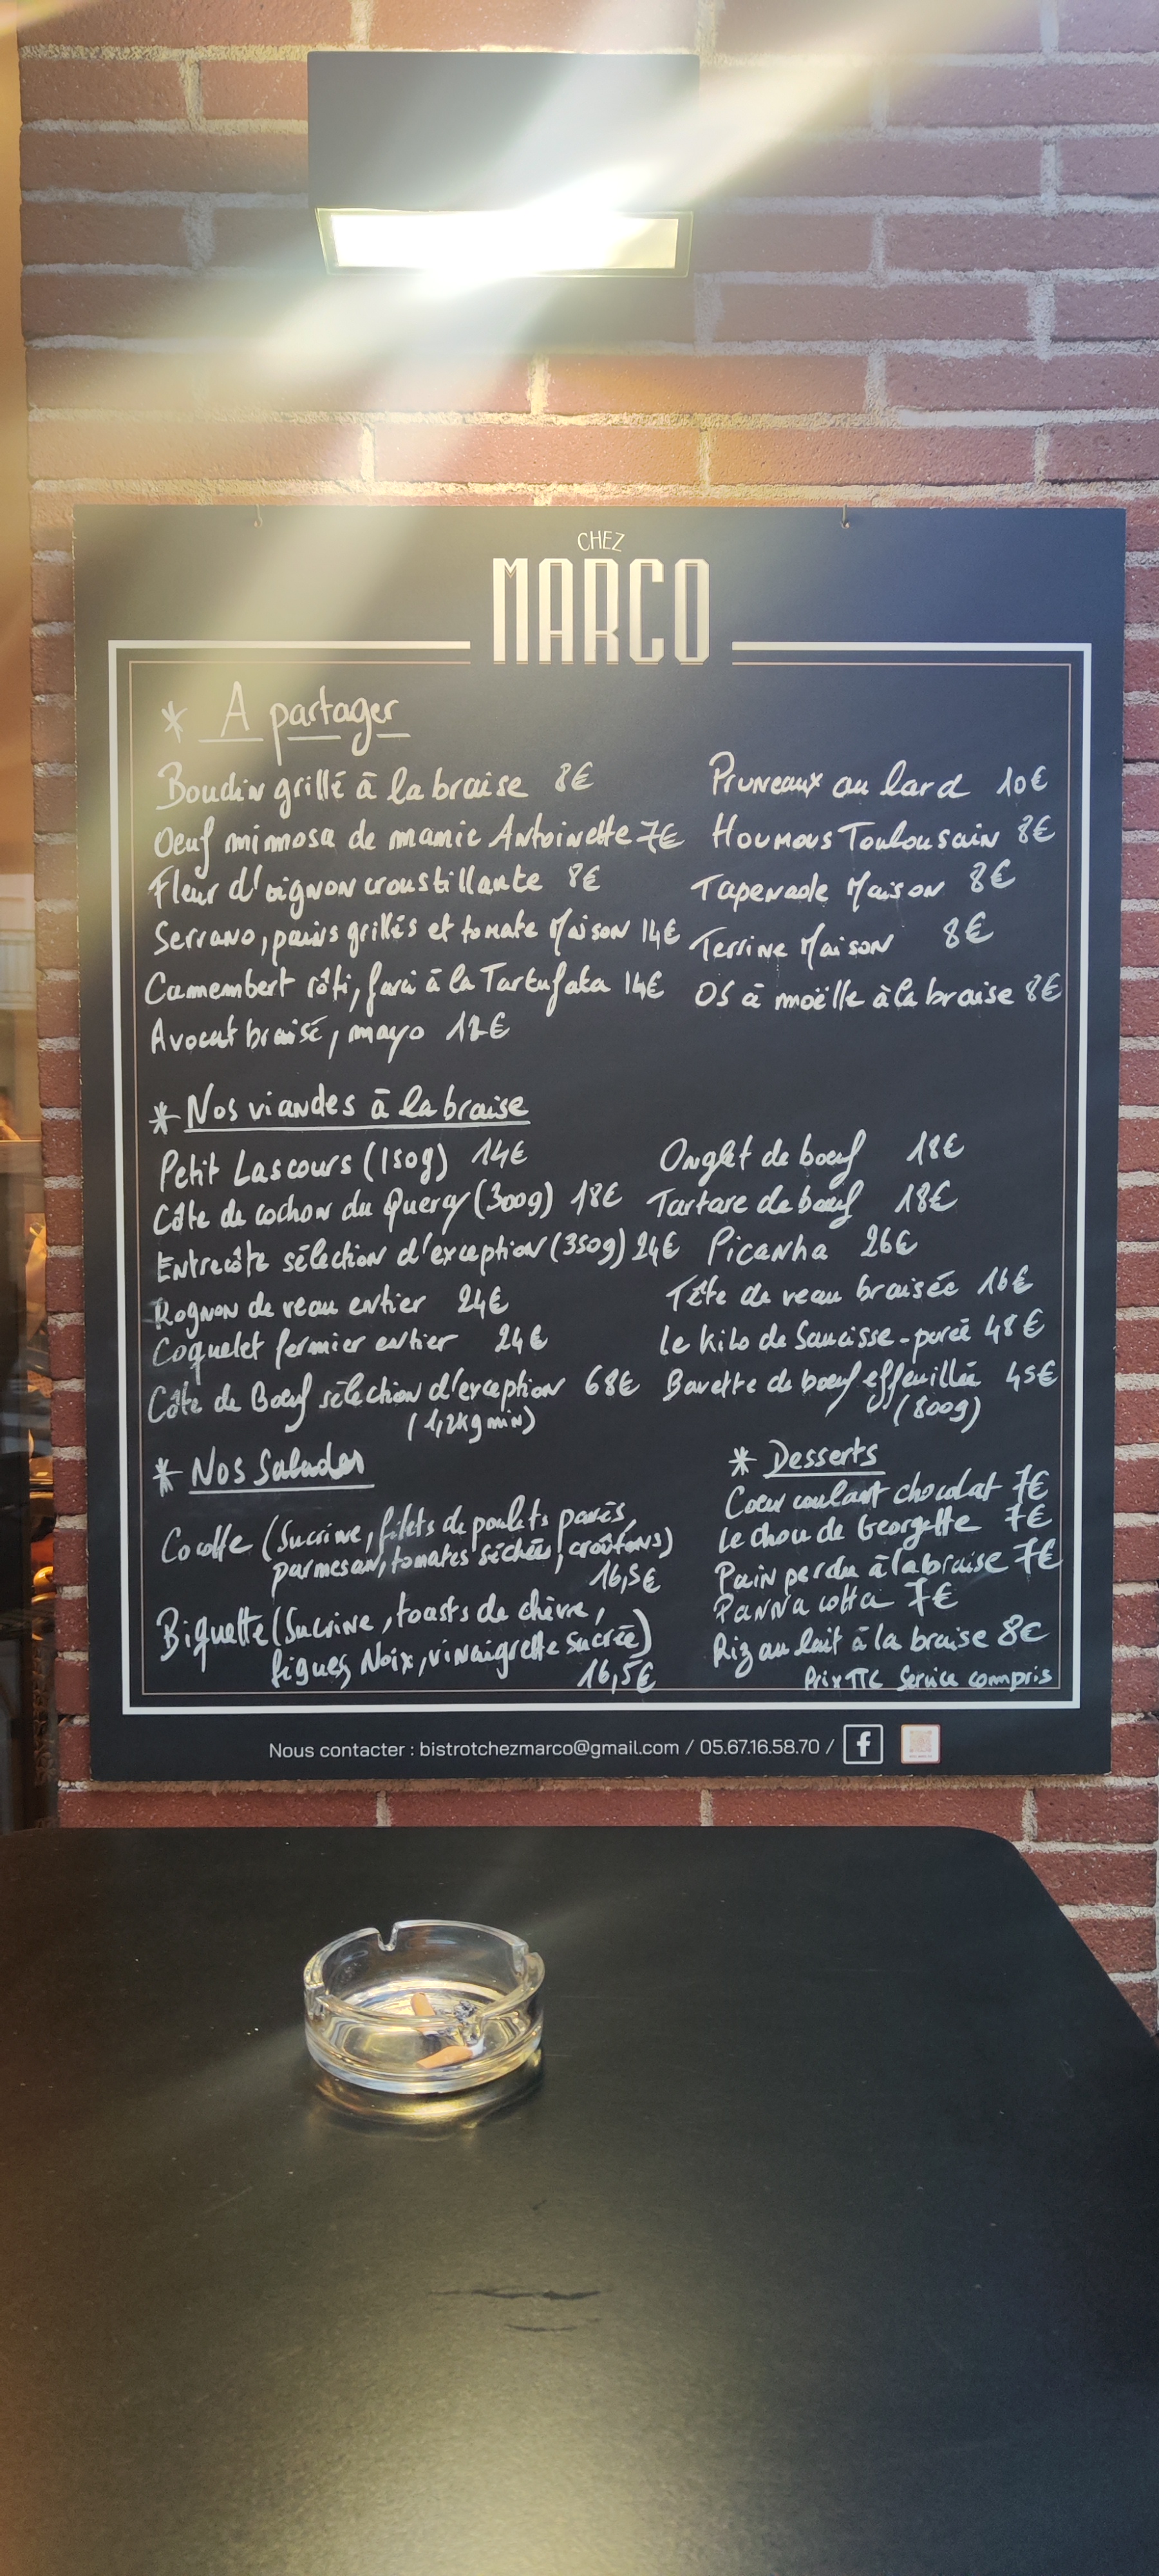 CHEZ
MARCO
* A partager
Boudin grillé à la braise 8€
Oeuf mimosa de mamie Antoinette 7€
Fleur d'oignon croustillante 8€
Serrano, pains grillés et tomate Maison 14€
Camembert rôti, farci à la Tartufata 14€
Avocat braisé, mayo 12€
Pruneaux au lard 10€
Houmous Toulousain 8€
Tapenade Maison 8€
Terrine Maison 8€
OS à moëlle à la braise 8€
* Nos viandes à la braise
Petit Lascours (150g) 14€
Côte de cochon du Quercy (300g) 18€
Entrecôte sélection d'exception (350g) 24€
Rognon de veau entier 24€
Coquelet fermier entier 24€
Côte de Boeuf sélection d'exception 68€
(1,2kg min)
Onglet de boeuf 18€
Tartare de boeuf 18€
Picanha 26€
Tête de veau braisée 16€
Le kilo de Saucisse-purée 48€
Bavette de boeuf effeuillée 45€
(800g)
* Nos Salades
Cocotte (Sucrine, filets de poulets panés,
parmesan, tomates séchées, croûtons)
16,5€
Biquette (Sucrine, toasts de chèvre,
figues, Noix, vinaigrette sucrée)
16,5€
* Desserts
Coeur coulant chocolat 7€
Le chou de Georgette 7€
Pain perdu à la braise 7€
Panna cotta 7€
Riz au lait à la braise 8€
Prix TTC Service compris
Nous contacter : bistrotchezmarco@gmail.com / 05.67.16.58.70 /